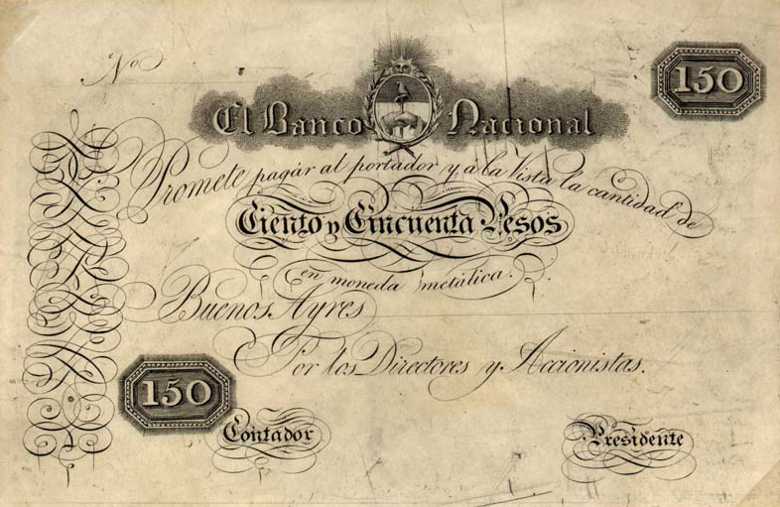 No
150
El Banco Nacional
Promete pagár al portador y á la vista la cantidad de
Ciento y Cincuenta Pesos
en moneda metálica.
Buenos Ayres
Por los Directores y Accionistas.
150
Contador
Presidente